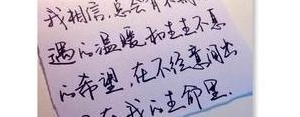 我相信,总会有不
遇的温暖和生生不息
的希望,在不经意间出
在我的生命里.